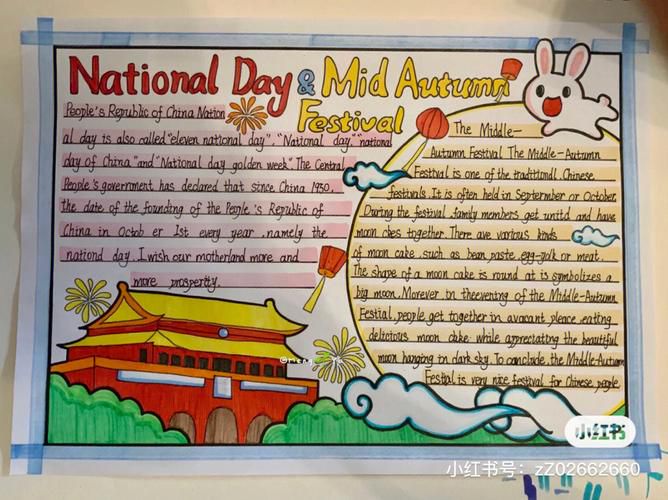 National Day & Mid Autumn
Festival
People's Republic of China Nation
al day is also called "eleven national day". "National day" "national
day of China "and" National day golden week". The Central
People's government has declared that since China 1950.
the date of the founding of the People 's Republic of
China in Octob er 1st every year, namely the
national day. I wish our motherland more and
more prosperity.
The Middle-
Autumn Festival The Middle-Autumn
Festival is one of the traditional Chinese
festivals. It is often held in Septermber or October.
During the festival family members get unitd and have
moon ckes together. There are various kinds
of moon cake. such as bean paste. egg-yolk or meat.
The shape of a moon cake is round at is symbolizes a
big moon. Morever, in theevening of the Middle-Autumn
Festial, people get together in avacant pleace eating
delicious moon cake while appreciating the beautiful
moon hanging in dark sky. To conclude, the Middle-Autumn
Festial is very nice festival for Chinese people.
小红书
小红书号：zZ02662660